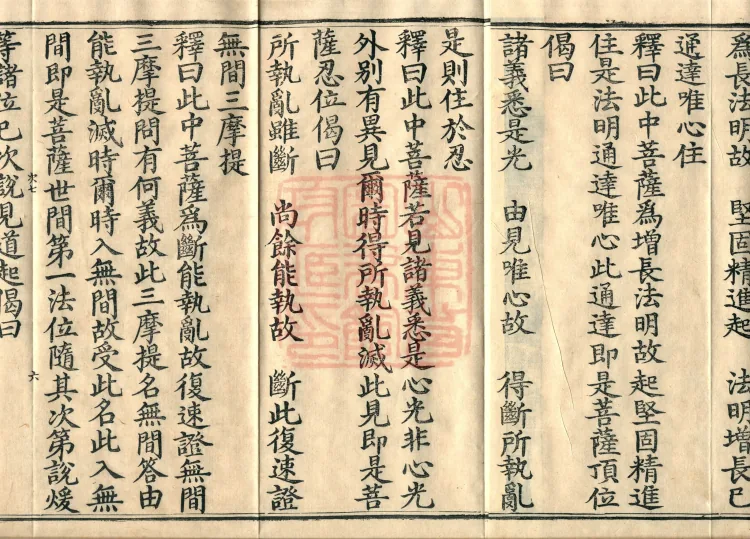 爲長法明故　堅固精進起　法明增長已
通達唯心住
釋曰此中菩薩爲增長法明故起堅固精進
住是法明通達唯心此通達即是菩薩頂位
偈曰
諸義悉是光　由見唯心故　得斷所執亂
是則住於忍
釋曰此中菩薩若見諸義悉是心光非心光
外別有異見爾時得所執亂滅此見即是菩
薩忍位偈曰
所執亂雖斷　尚餘能執故　斷此復速證
無間三摩提
釋曰此中菩薩爲斷能執亂故復速證無間
三摩提問有何義故此三摩提名無間答由
能執亂滅時爾時入無間故受此名此入無
間即是菩薩世間第一法位隨其次第說煖
等諸位已次說見道起偈曰
六